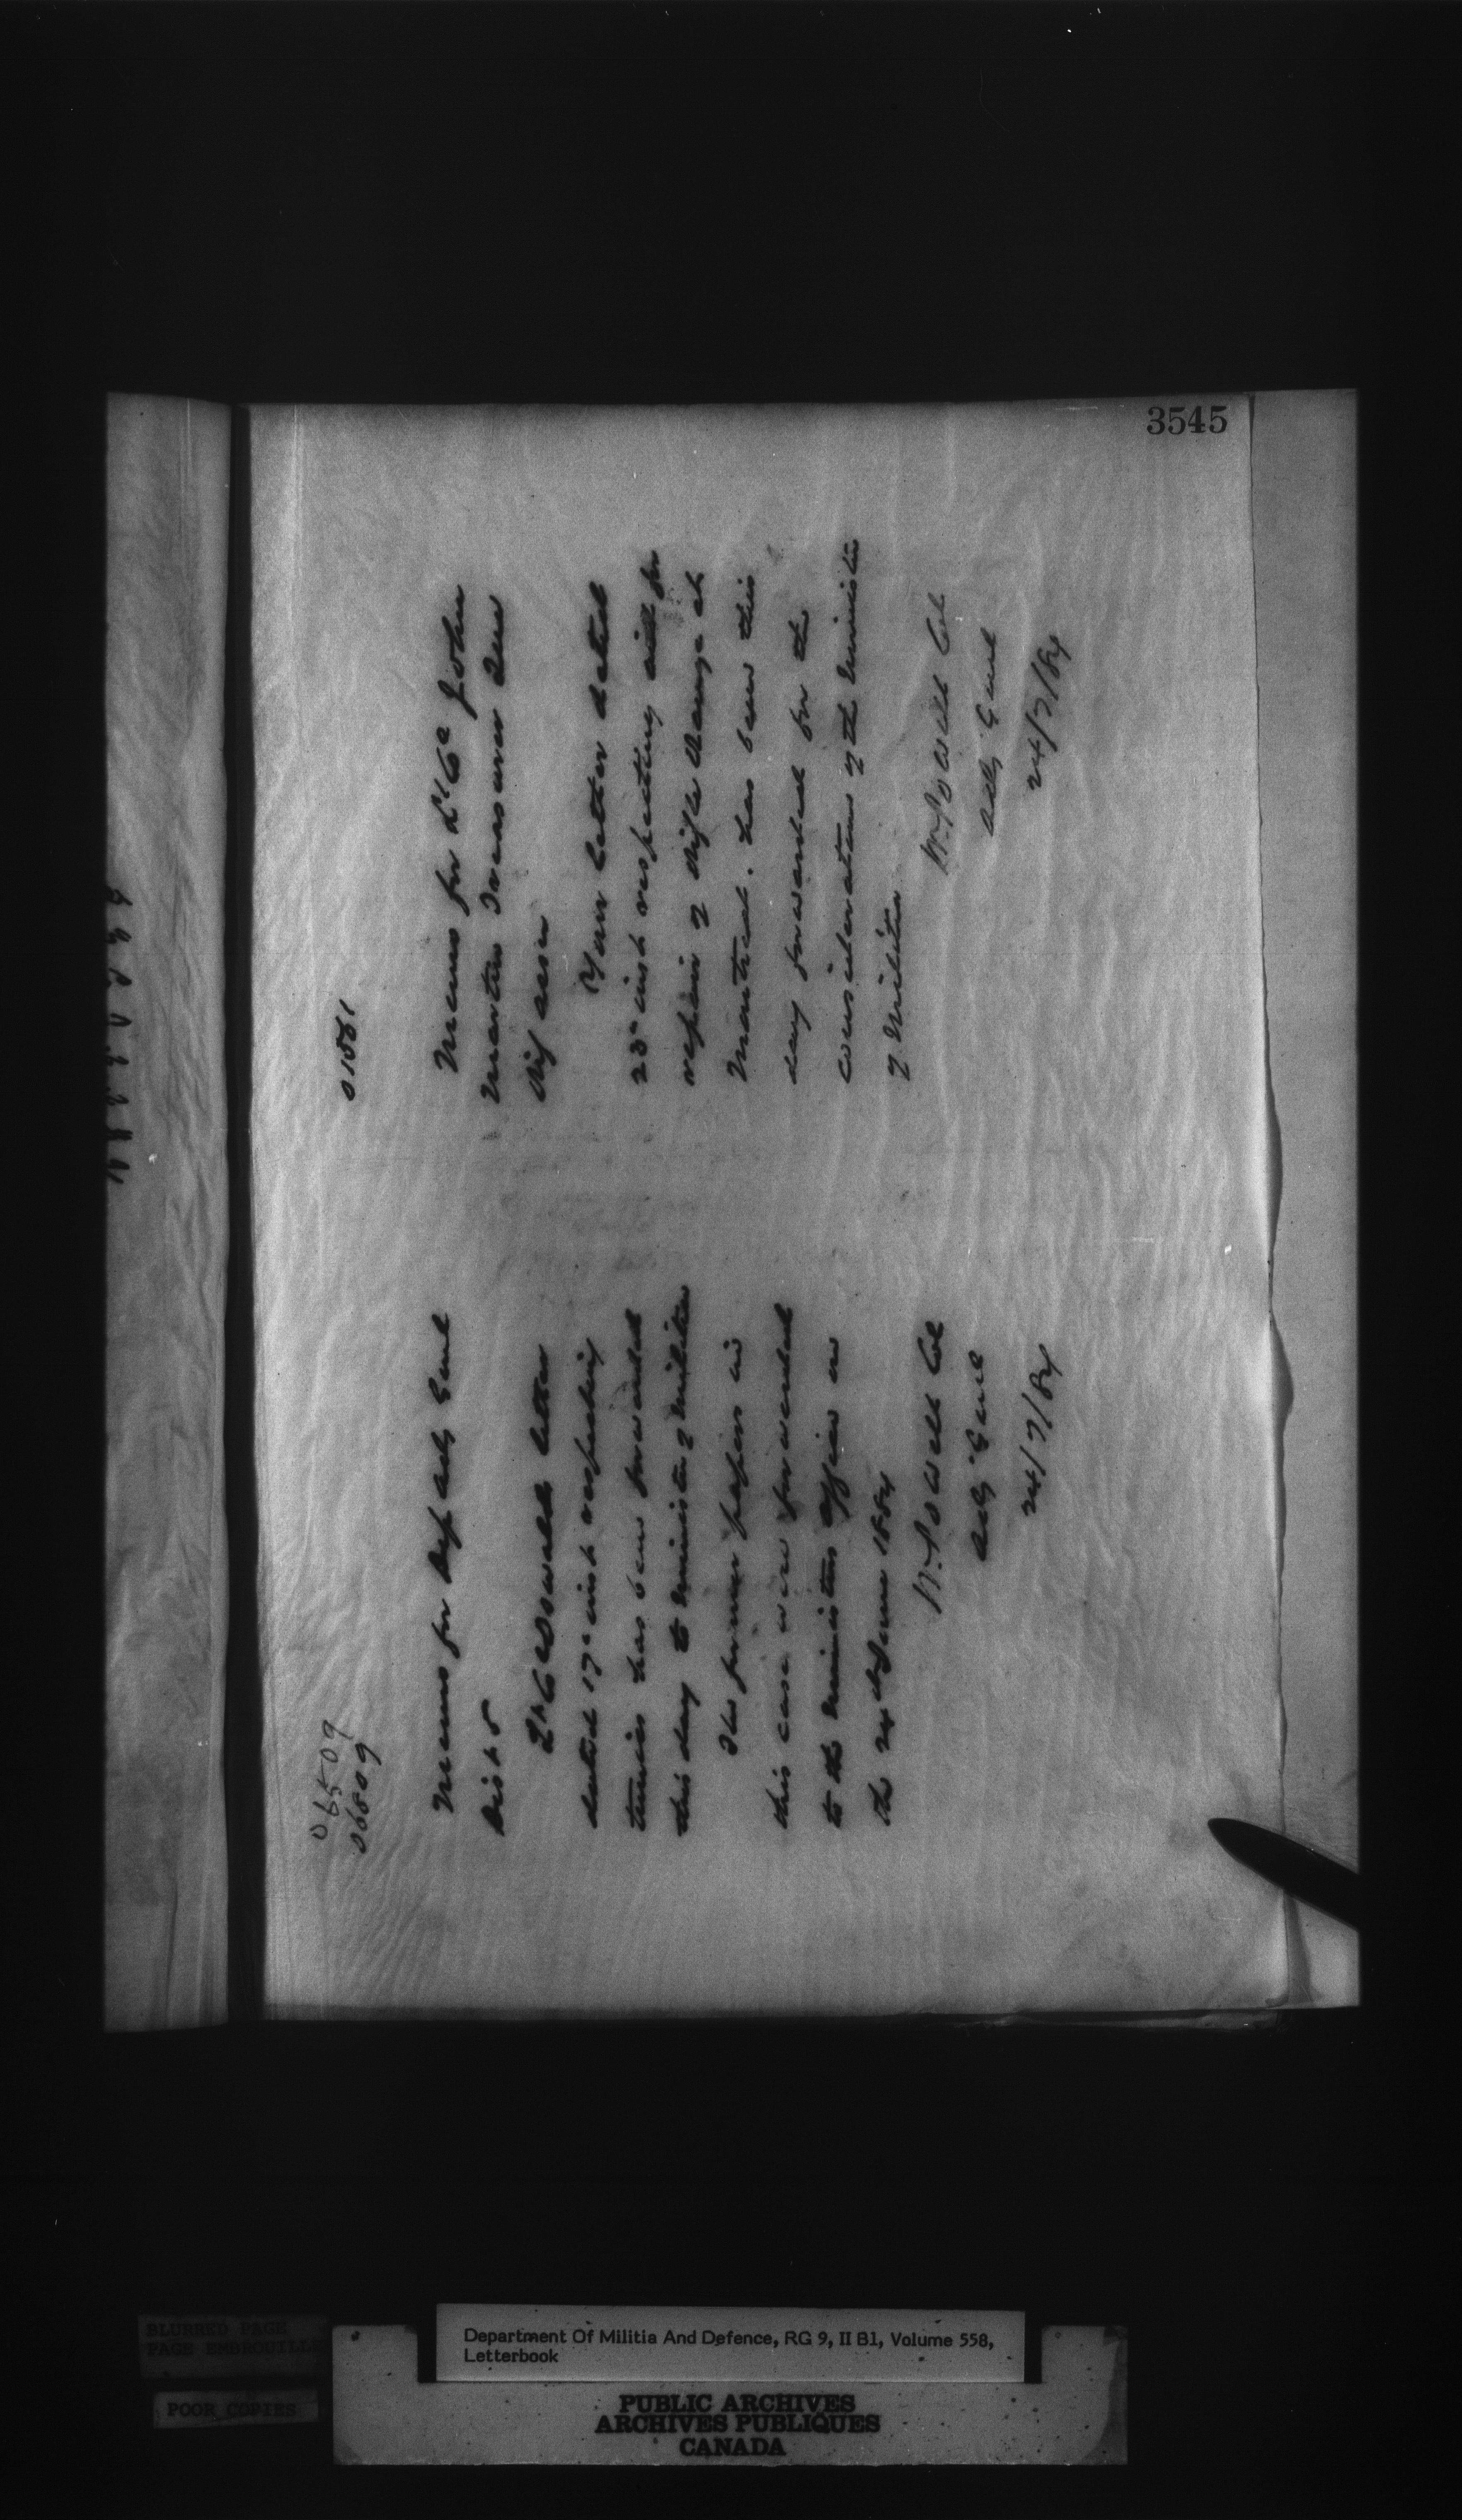 3545
06509
06509
Memo for Dep Adj Genl
Dist 5
Lt Col Oswalds letter
dated 17th inst respecting
tunics has been forwarded
this day to Minister of Militia
The former papers in
this case were forwarded
to the Ministers office on
the 24th June 1884
W. Powell Col
Adj Genl
24/7/84
01561
Memo for Lt Col John
Martin Treasurer Que
Rif assn
Your letter dated
23rd inst respecting aid for
repair of Rifle Range at
Montreal, has been this
day forwarded for the
consideration of the Minister
of Militia
W. Powell Col
Adj Genl
24/7/84
BLURRED PAGE
PAGE EMBROUILL
POOR COPIES
Department Of Militia And Defence, RG 9, II B1, Volume 558,
Letterbook
PUBLIC ARCHIVES
ARCHIVES PUBLIQUES
CANADA